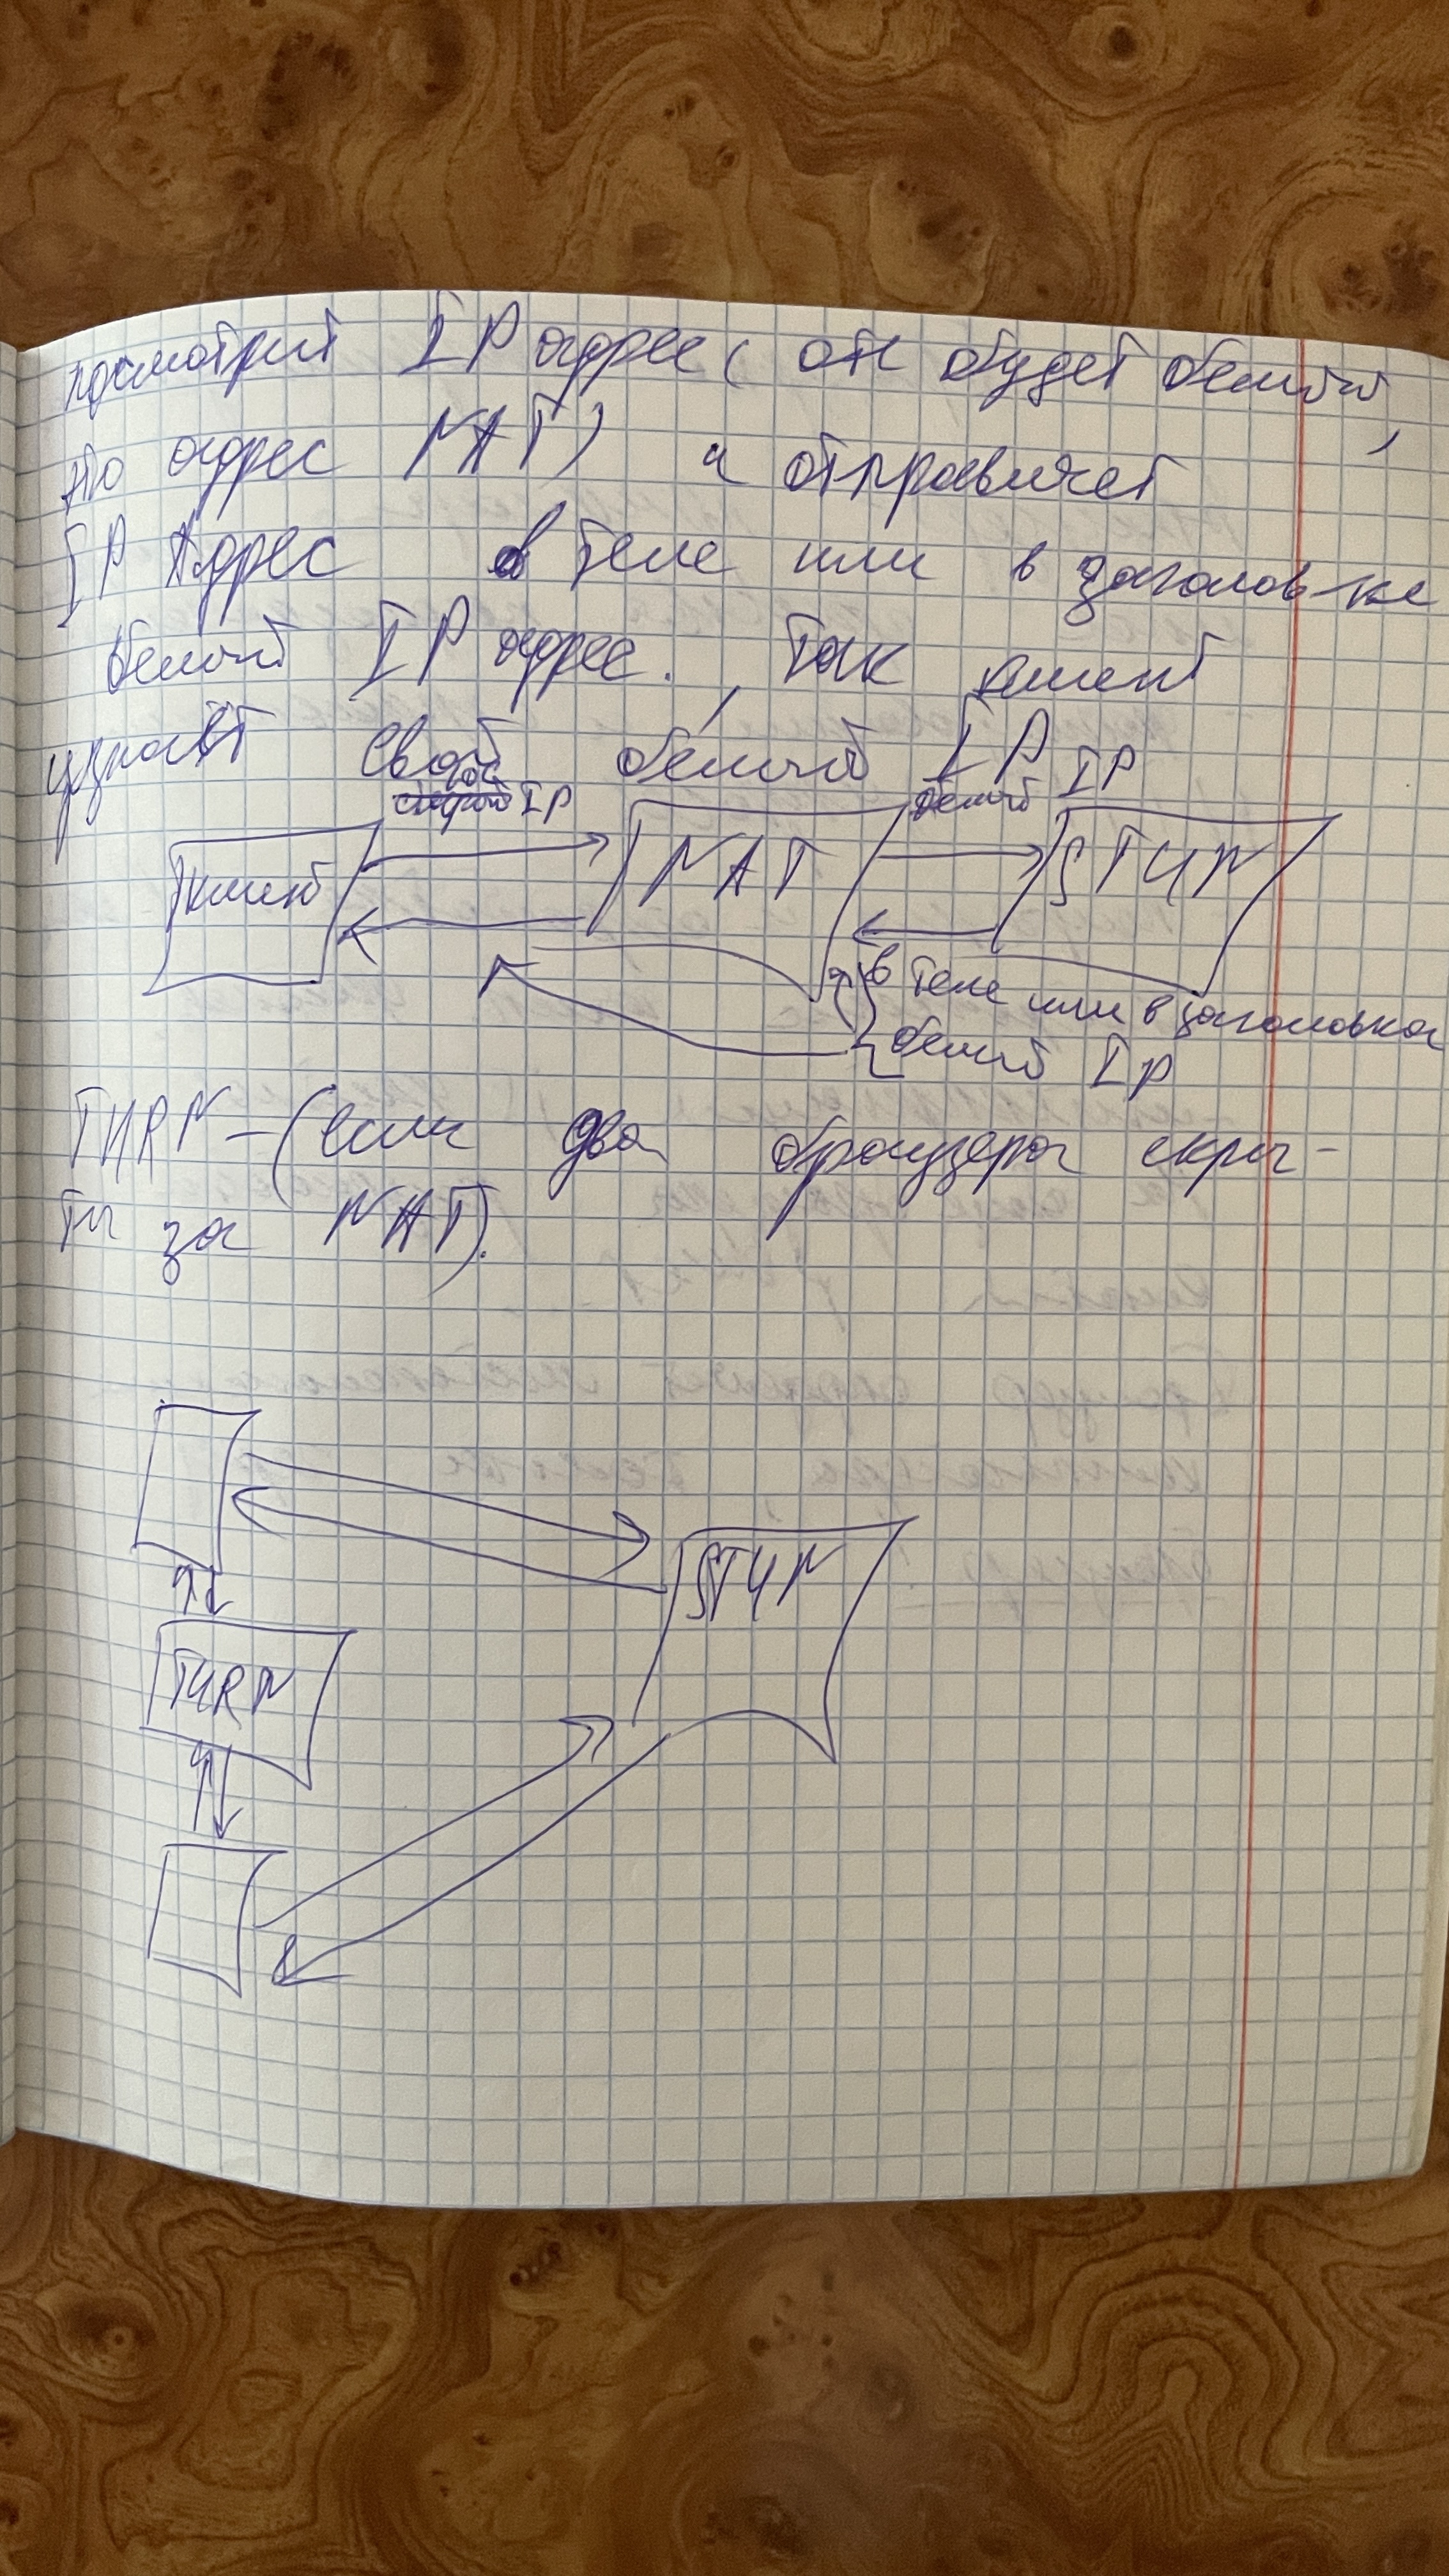 посмотрит IP адрес (он будет белый,
это адрес NAT) и отправляет
IP Адрес в теле или в заголовке
белый IP адрес. Так клиент
узнаёт свой белый IP
IP белый IP
Клиент NAT STUN
в теле или в заголовках
белый IP
TURN - (если два браузера скры-
ты за NAT).
STUN
TURN